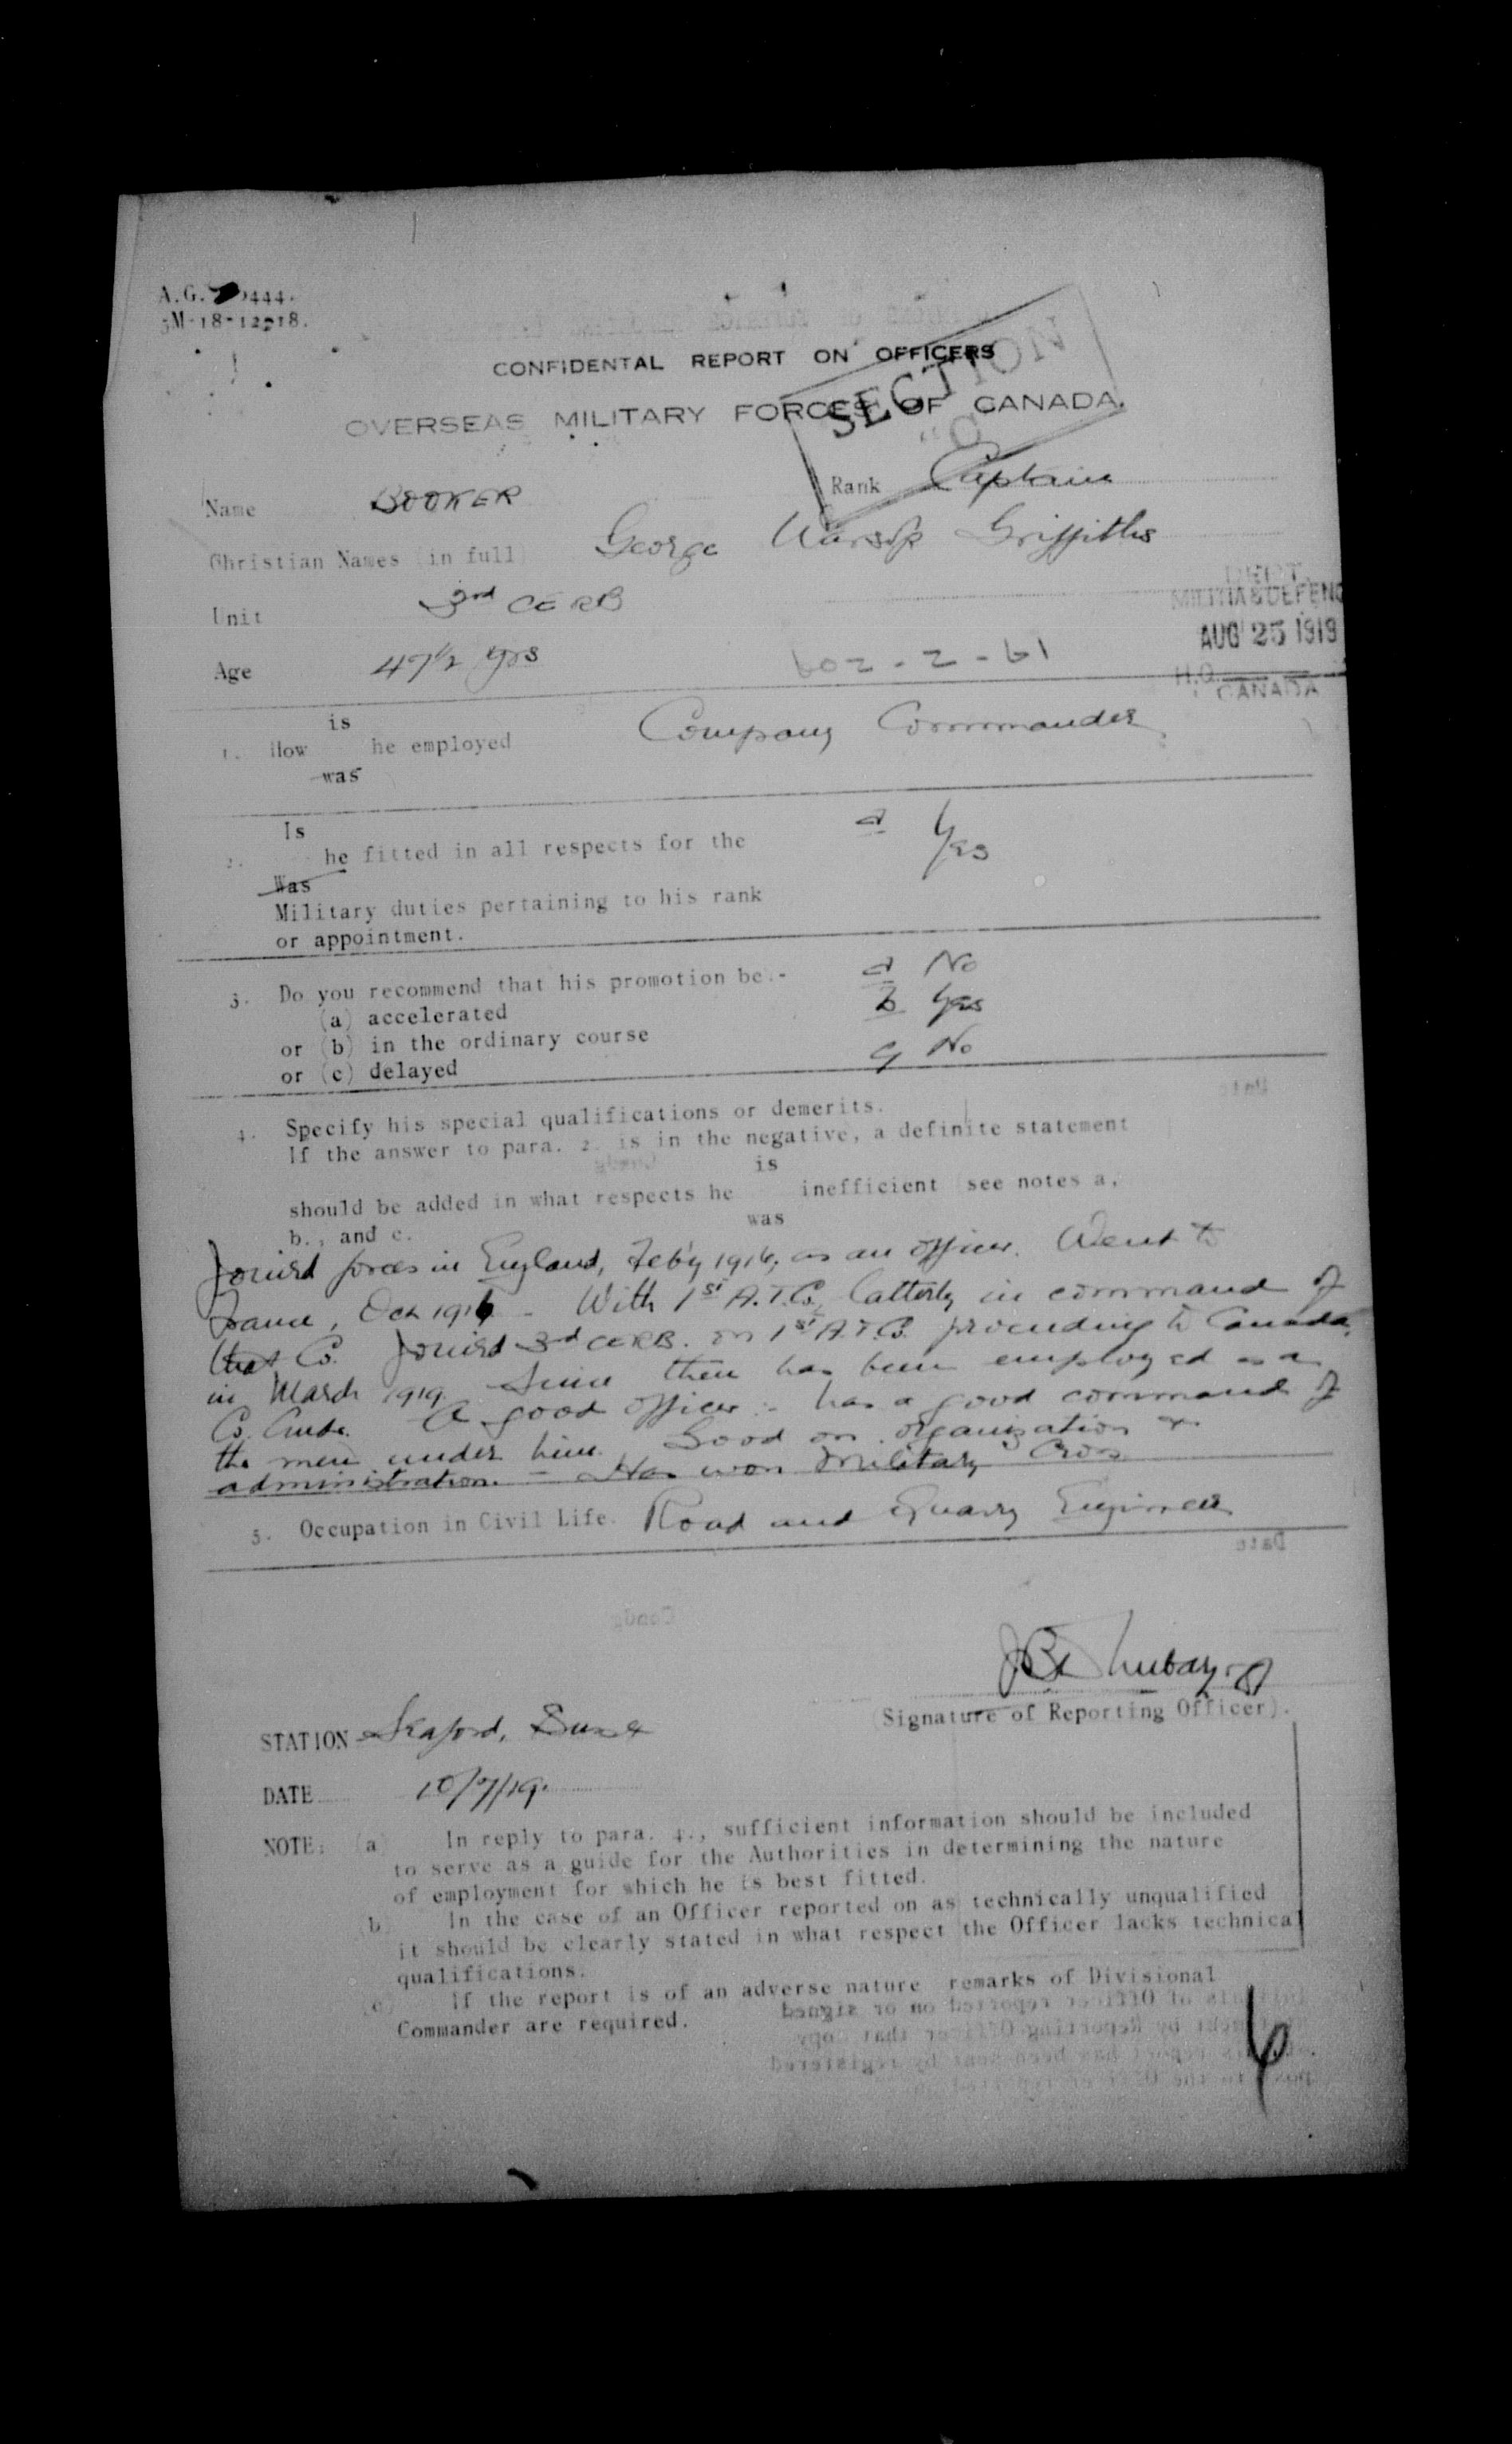 A.G. 444.
5M-18-12-18.
CONFIDENTAL REPORT ON OFFICERS
OVERSEAS MILITARY FORCES OF CANADA.
SECTION
Name BOOKER Rank Captain
Christian Names (in full) George Warsop Griffiths
Unit 3rd CERB
Age 47½ yrs
602-2-61
DEPT.
MILITIA & DEFENC
AUG 25 1919
H.Q.
CANADA
is
1. How he employed Company Commander
was
Is
2. he fitted in all respects for the a Yes
Was
Military duties pertaining to his rank
or appointment.
3. Do you recommend that his promotion be:- a No
(a) accelerated b Yes
or (b) in the ordinary course
or (c) delayed c No
4. Specify his special qualifications or demerits.
If the answer to para. 2. is in the negative, a definite statement
is
should be added in what respects he inefficient (see notes a,
was
b., and c.
Joined forces in England, Feb'y 1916, as an officer. Went to
France, Oct 1916 - With 1st A.T.Co, latterly in command of
that Co. Joined 3rd CERB. on 1st A.T.C. proceeding to Canada,
in March 1919. Since then has been employed as a
Co. Cmdr. A good officer :- has a good command of
the men under him. Good on organization &
administration. - Has won Military Cross
5. Occupation in Civil Life. Road and Quarry Engineer
(Signature of Reporting Officer).
STATION Seaford, Sussex
DATE 10/7/19.
NOTE: (a) In reply to para. 4., sufficient information should be included
to serve as a guide for the Authorities in determining the nature
of employment for which he is best fitted.
b) In the case of an Officer reported on as technically unqualified
it should be clearly stated in what respect the Officer lacks technical
qualifications.
(c) If the report is of an adverse nature remarks of Divisional
Commander are required.